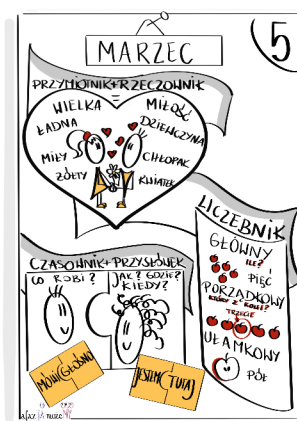 MARZEC
5
PRZYMIOTNIK+RZECZOWNIK
=
WIELKA MIŁOŚĆ
ŁADNA DZIEWCZYNA
MIŁY CHŁOPAK
ŻÓŁTY KWIATEK
LICZEBNIK
GŁÓWNY
ILE?
PIĘĆ
PORZĄDKOWY
KTÓRY Z KOLEI?
TRZECIE
UŁAMKOWY
PÓŁ
CZASOWNIK+PRZYSŁÓWEK
CO ROBI? JAK? GDZIE?
KIEDY?
MÓWIĆ GŁOŚNO
JESTEM TUTAJ